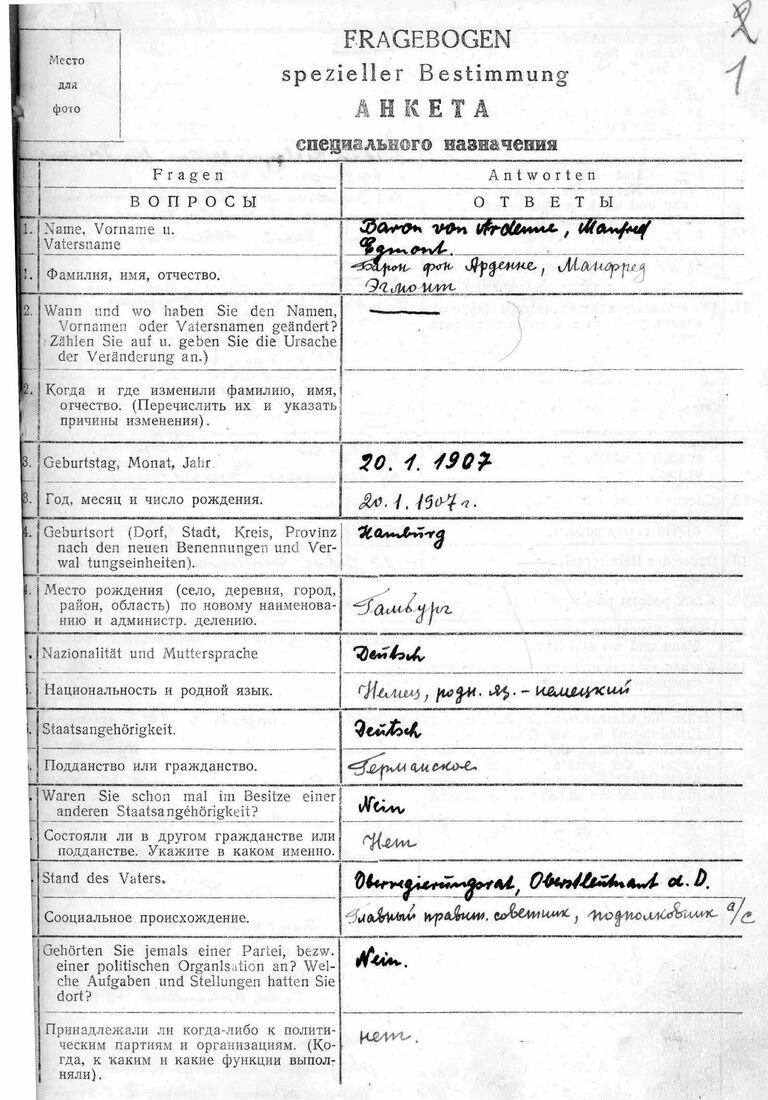 2
1
Место
для
фото
FRAGEBOGEN
spezieller Bestimmung
АНКЕТА
специального назначения
Fragen
Antworten
ВОПРОСЫ
ОТВЕТЫ
1. Name, Vorname u.
Vatersname
Baron von Ardenne, Manfred
Egmont.
1. Фамилия, имя, отчество.
Барон фон Арденне, Манфред
Эгмонт
2. Wann und wo haben Sie den Namen,
Vornamen oder Vatersnamen geändert?
(Zählen Sie auf u. geben Sie die Ursache
der Veränderung an.)
2. Когда и где изменили фамилию, имя,
отчество. (Перечислить их и указать
причины изменения).
3. Geburtstag, Monat, Jahr.
20. 1. 1907
3. Год, месяц и число рождения.
20.1.1907 г.
4. Geburtsort (Dorf, Stadt, Kreis, Provinz
nach den neuen Benennungen und Ver-
wal tungseinheiten).
Hamburg
4. Место рождения (село, деревня, город,
район, область) по новому наименова-
нию и администр. делению.
Гамбург
Nazionalität und Muttersprache
Deutsch
Национальность и родной язык.
Немец, родн. яз. - немецкий
Staatsangehörigkeit.
Deutsch
Подданство или гражданство.
Германское
Waren Sie schon mal im Besitze einer
anderen Staatsangehörigkeit?
Nein
Состояли ли в другом гражданстве или
подданстве. Укажите в каком именно.
Нет
Stand des Vaters.
Oberregierungsrat, Oberstleutnant a. D.
Сооциальное происхождение.
Главный правит. советник, подполковник в/с
Gehörten Sie jemals einer Partei, bezw.
einer politischen Organlsation an? Wel-
che Aufgaben und Stellungen hatten Sie
dort?
Nein.
Принадлежали ли когда-либо к полити-
ческим партиям и организациям. (Ко-
гда, к каким и какие функции выпол-
няли).
нет.